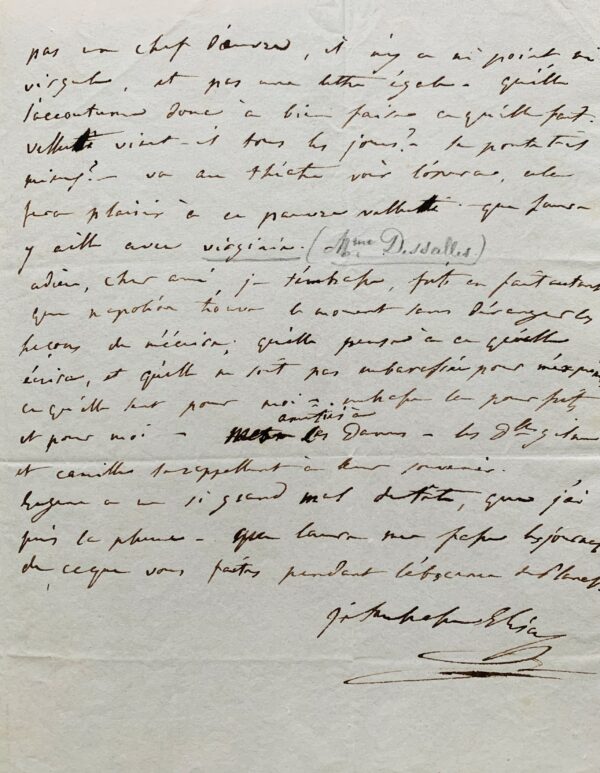 pas un chef d'œuvre, il n'y a ni point ni
virgule, et pas une lettre égale - qu'elle
s'accoutume donc à bien faire ce qu'elle fait.
vient-il tous les jours? - se porte t-il
mieux? - va au théatre voir l'opera, cela
fera plaisir à ce pauvre - que Laura
y aille avec virginie. (Mme Dessalles)
adieu, cher ami, je t'embrasse, fais en faire autant
que napoléon trouve le moment sans déranger les
leçons de m'écrire; qu'elle pense à ce qu'elle
écrira, et qu'elle ne soit pas embarassée pour
ce qu'elle sent pour moi - embrasse la pour
et pour moi - amitiés à les Dames - les Dlles
et camille se rappellent à leur souvenir.
Eugene a un si grand mal de tête, que j'ai
pris la plume - que Laura me fasse les journaux
de ce que vous faites pendant l'absence de
je t'embrasse Elisa